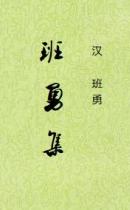 汉 班勇
班勇集